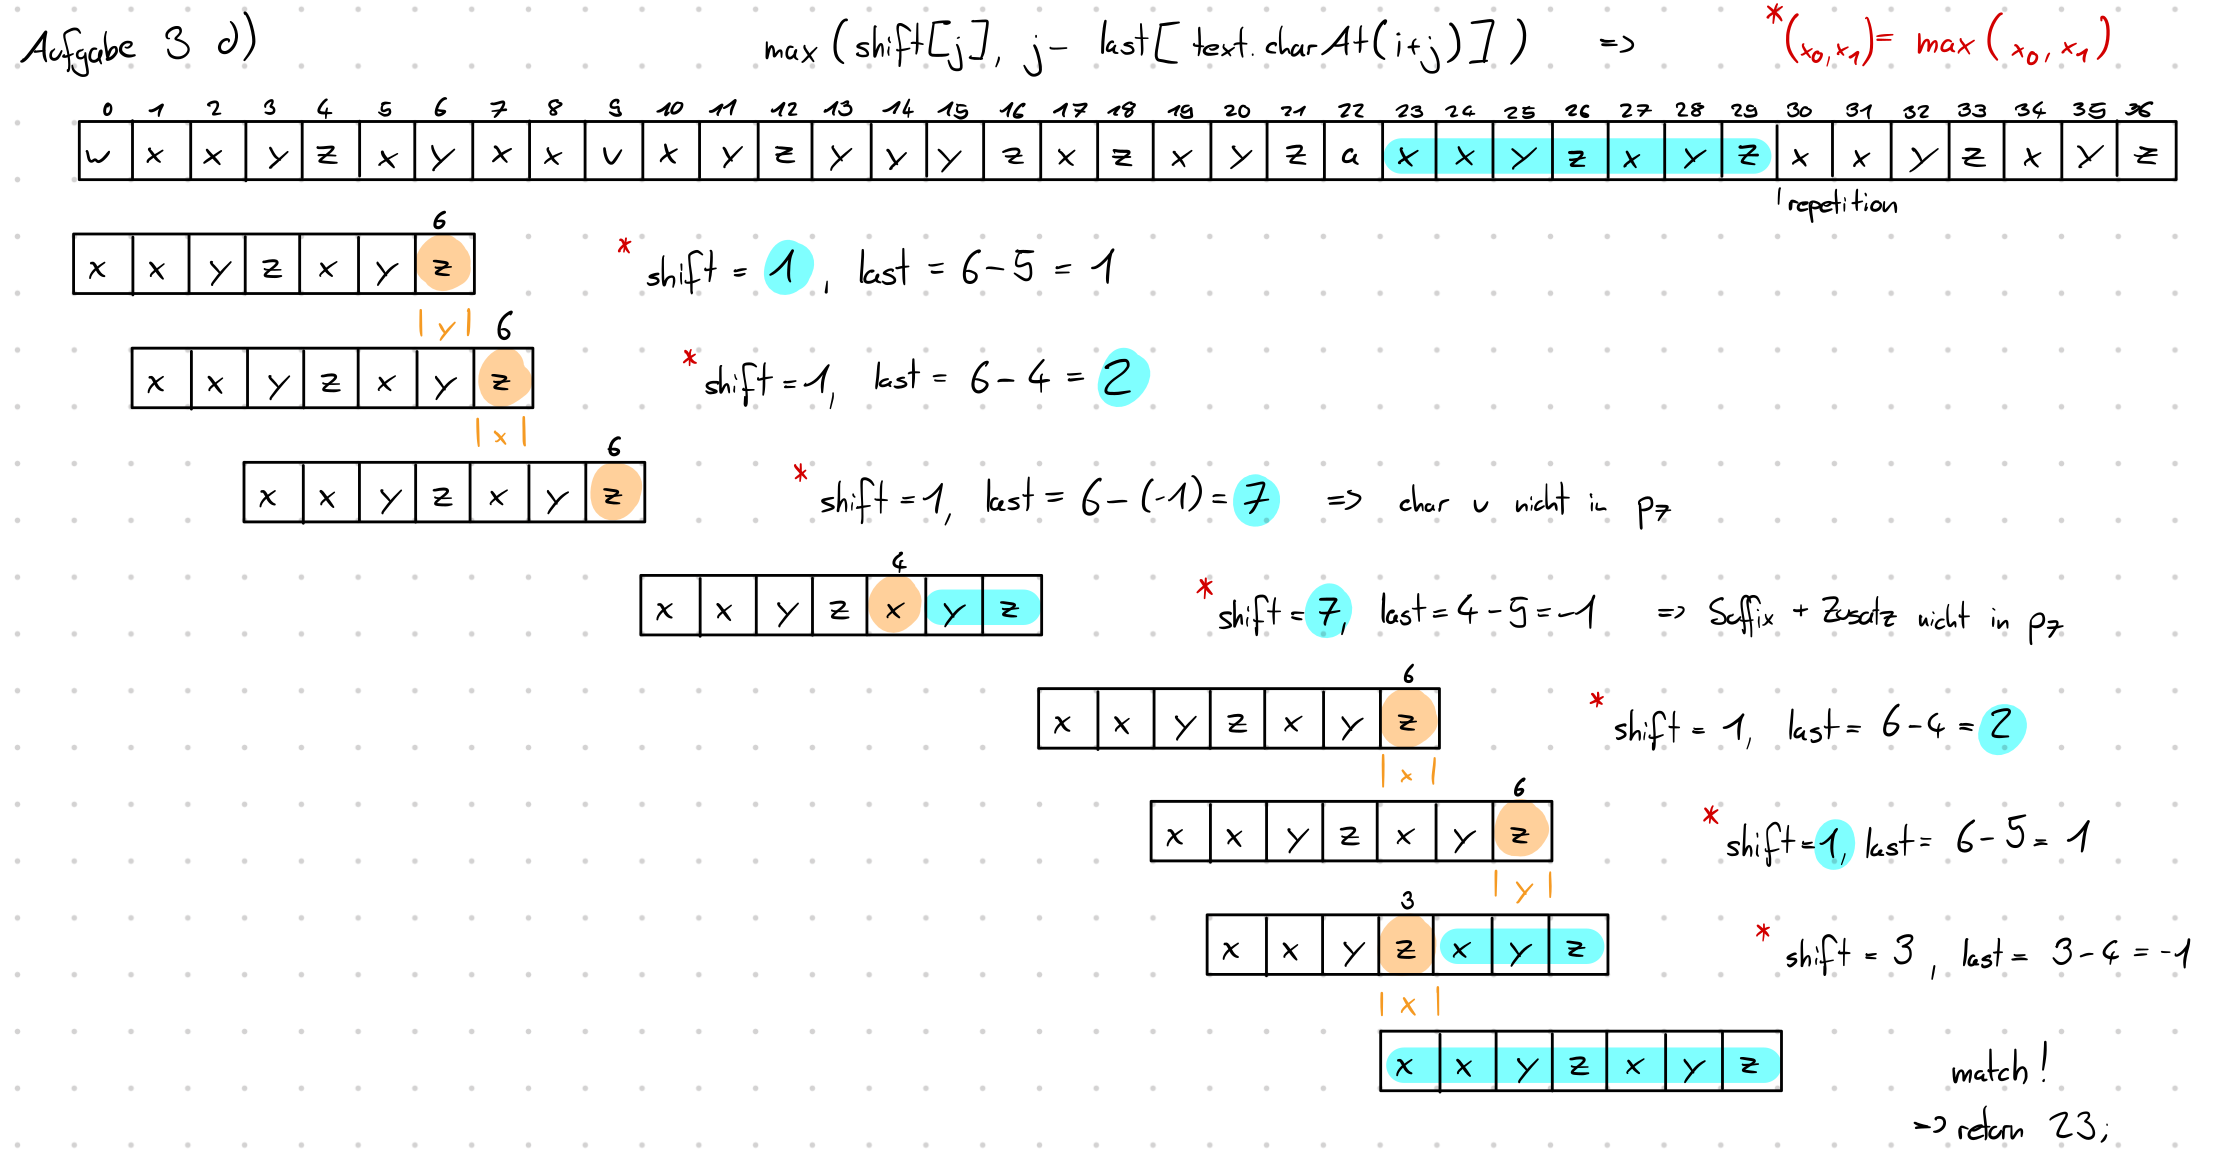 Aufgabe 3 d) max (shift[j], j - last[text.charAt(i+j)]) => *(x₀,x₁) = max (x₀, x₁)
0 1 2 3 4 5 6 7 8 9 10 11 12 13 14 15 16 17 18 19 20 21 22 23 24 25 26 27 28 29 30 31 32 33 34 35 36
w x x y z x y x x u x y z y y y z x z x y z a x x y z x y z x x y z x y z
repetition
6
x x y z x y z * shift = 1, last = 6-5 = 1
|y| 6
x x y z x y z * shift = 1, last = 6-4 = 2
|x| 6
x x y z x y z * shift = 1, last = 6-(-1) = 7 => char u nicht in p7
4
x x y z x y z * shift = 7, last = 4-5 = -1 => Suffix + Zusatz nicht in p7
6
x x y z x y z * shift = 1, last = 6-4 = 2
|x| 6
x x y z x y z * shift = 1, last = 6-5 = 1
|y|
3
x x y z x y z * shift = 3, last = 3-4 = -1
|x|
x x y z x y z match!
=> return 23;